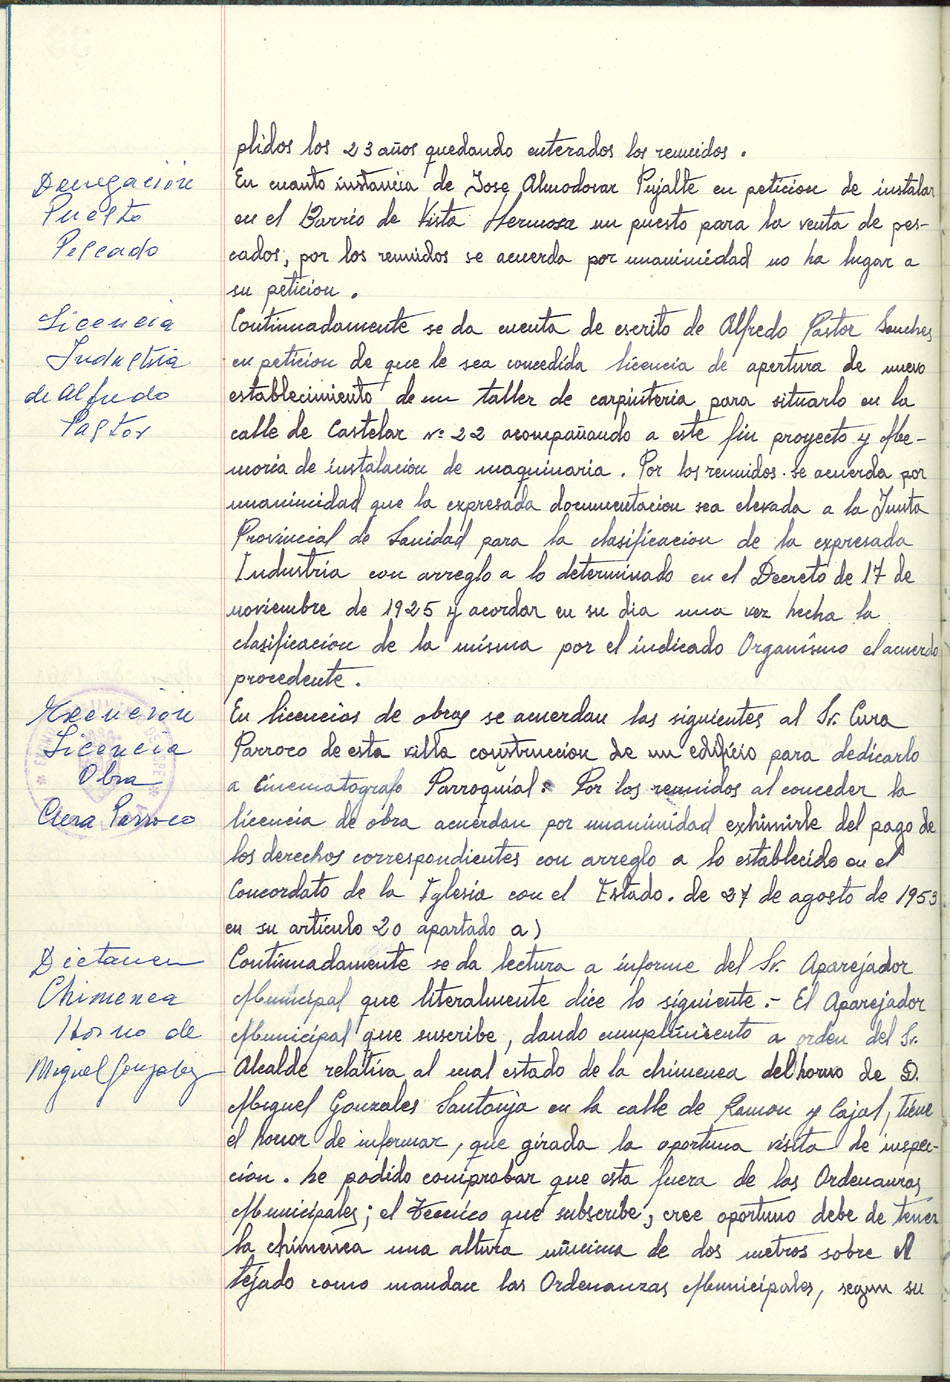 plidos los 23 años quedando enterados los reunidos.
Denegación
Puesto
Pescado
En cuanto instancia de Jose Almodovar Pujalte en peticion de instalar
en el Barrio de Vista Hermosa un puesto para la venta de pes-
cados, por los reunidos se acuerda por unanimidad no ha lugar a
su peticion.
Licencia
Industria
de Alfredo
Pastor
Continuadamente se da cuenta de escrito de Alfredo Pastor Sanches
en peticion de que le sea concedida licencia de apertura de nuevo
establecimiento de un taller de carpinteria para situarlo en la
calle de Castelar nº 22 acompañando a este fin proyecto y Me-
moria de instalacion de maquinaria. Por los reunidos se acuerda por
unanimidad que la expresada documentacion sea elevada a la Junta
Provincial de Sanidad para la clasificacion de la expresada
Industria con arreglo a lo determinado en el Decreto de 17 de
noviembre de 1925 y acordar en su dia una vez hecha la
clasificacion de la misma por el indicado Organismo el acuerdo
procedente.
Exención
Licencia
Obra
Cura Parroco
En licencias de obras se acuerdan las siguientes al Sr. Cura
Parroco de esta villa construccion de un edificio para dedicarlo
a cinematografo Parroquial: Por los reunidos al conceder la
licencia de obra acuerdan por unanimidad exhimirle del pago de
los derechos correspondientes con arreglo a lo establecido en el
Concordato de la Iglesia con el Estado. de 27 de agosto de 1953
en su articulo 20 apartado a)
Dictamen
Chimenea
Horno de
Miguel Gonzalez
Continuadamente se da lectura a informe del Sr. Aparejador
Municipal que literalmente dice lo siguiente.- El Aparejador
Municipal que suscribe, dando cumplimiento a orden del Sr.
Alcalde relativa al mal estado de la chimenea del horno de D.
Miguel Gonzales Santonja en la calle de Ramon y Cajal, tiene
el honor de informar, que girada la oportuna visita de inspec-
ción. he podido comprobar que esta fuera de las Ordenanzas
Municipales; el Tecnico que subscribe, cree oportuno debe de tener
la chimenea una altura minima de dos metros sobre el
tejado como mandan las Ordenanzas Municipales, segun su